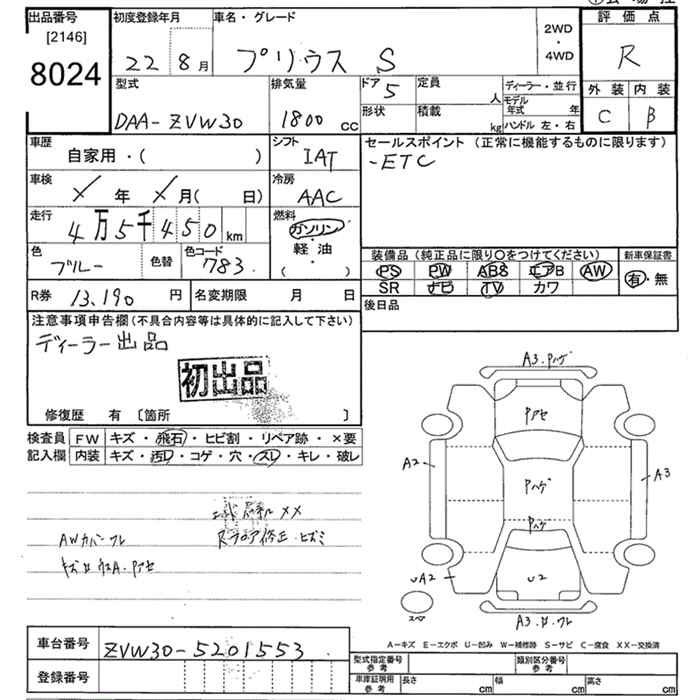 出品番号
[2146]
8024
初度登録年月
22 8月
車名・グレード
プリウス S
2WD
・
4WD
評価点
R
外装 内装
C B
型式
DAA-ZVW30
排気量
1800 cc
ドア 5
形状
定員 人
積載 kg
ディーラー・並行
モデル年式 年
ハンドル 左・右
車歴
自家用・( )
シフト
IAT
セールスポイント (正常に機能するものに限ります)
-ETC
車検
× 年 × 月( 日)
冷房
AAC
走行
4万5千450 km
燃料
ガソリン
軽油
( )
色
ブルー
色替
色コード
783
装備品 (純正品に限り〇をつけてください)
PS PW ABS エアB AW
SR ナビ TV カワ
新車保証書
有・無
R券 13,190 円
名変期限 月 日
後日品
注意事項申告欄 (不具合内容等は具体的に記入して下さい)
ディーラー出品
初出品
修復歴 有 〔箇所 〕
検査員
記入欄
FW キズ・飛石・ヒビ割・リペア跡・×要
内装 キズ・汚レ・コゲ・穴・スレ・キレ・破レ
××
AWカバーワレ
Rフロア修正・ヒズミ
A3.Pハゲ
Pアセ
A2
Pハゲ
A3
Pハゲ
UA2
U2
スペア
A3.ワレ
A-キズ E-エクボ U-凹み W-補修跡 S-サビ C-腐食 XX-交換済
車台番号
ZVW30-5201553
登録番号
型式指定番号
参考
類別区分番号
参考
車庫証明用
参考
長さ cm
幅 cm
高さ cm